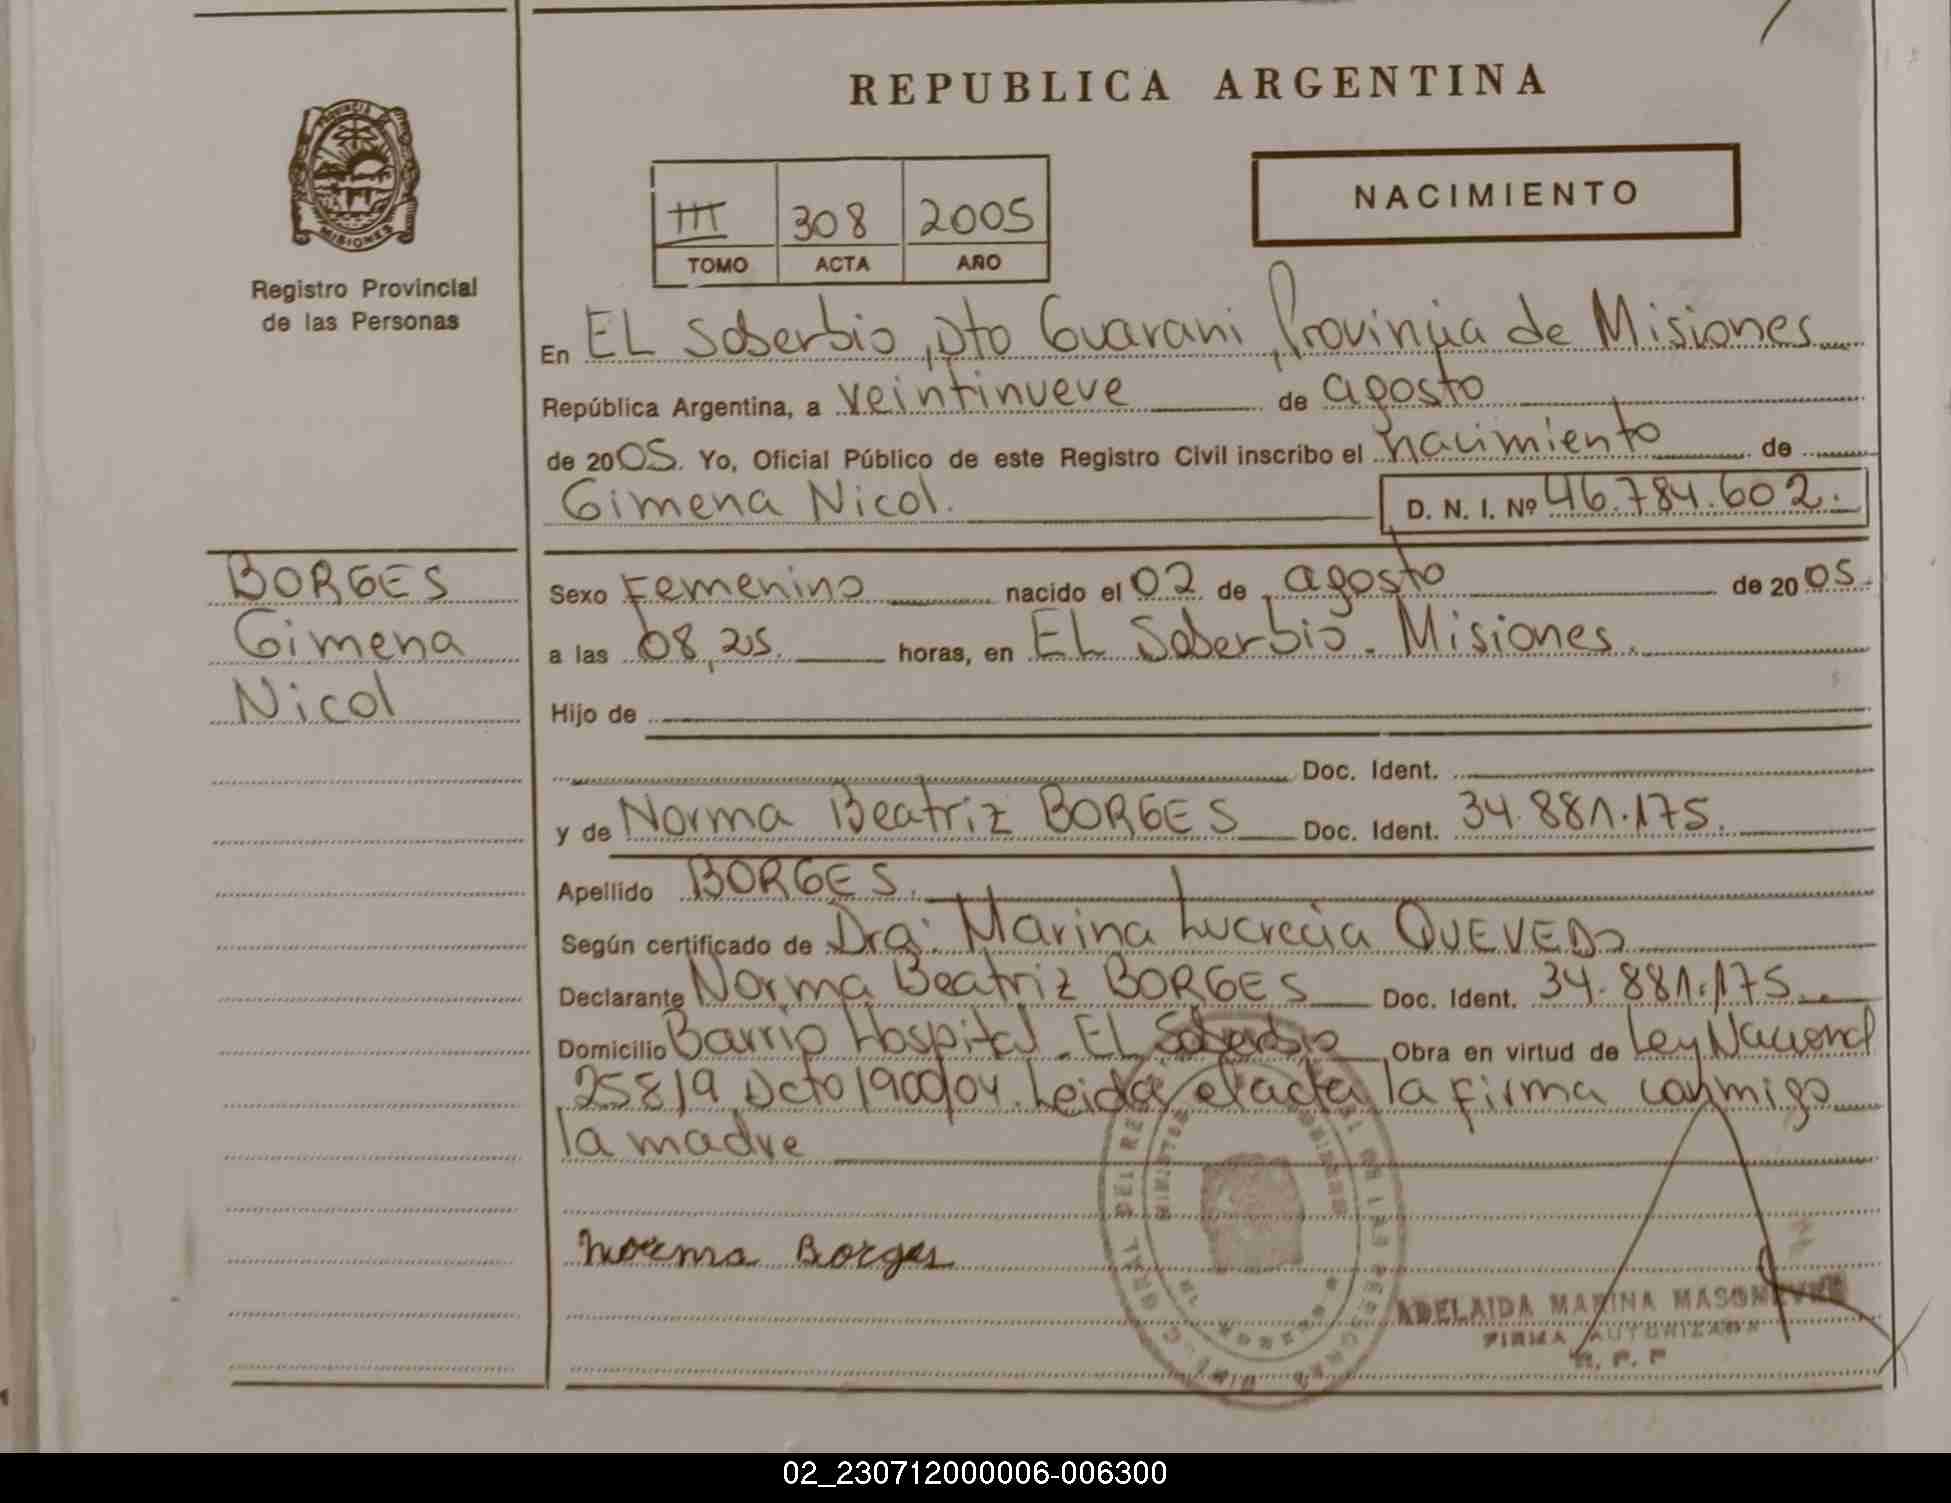 REPUBLICA ARGENTINA
PROVINCIA DE
MISIONES
Registro Provincial
de las Personas
III 308 2005
TOMO ACTA AÑO
NACIMIENTO
En EL Soberbio, Dto Guarani, Provincia de Misiones
República Argentina, a veintinueve de agosto
de 2005. Yo, Oficial Público de este Registro Civil inscribo el nacimiento de
Gimena Nicol. D. N. I. Nº 46.784.602.
BORGES
Gimena
Nicol
Sexo Femenino nacido el 02 de agosto de 2005.
a las 08,25. horas, en EL Soberbio. Misiones.
Hijo de
Doc. Ident.
y de Norma Beatriz BORGES Doc. Ident. 34.881.175.
Apellido BORGES.
Según certificado de Dra: Marina Lucrecia QUEVEDO
Declarante Norma Beatriz BORGES Doc. Ident. 34.881.175
Domicilio Barrio Hospital. EL Soberbio Obra en virtud de Ley Nacional
25819 Dcto 1900/04. Leida el acta la firma conmigo
la madre
Norma Borges
ADELAIDA MARINA
FIRMA AUTORIZADA
R. P. P
02_230712000006-006300